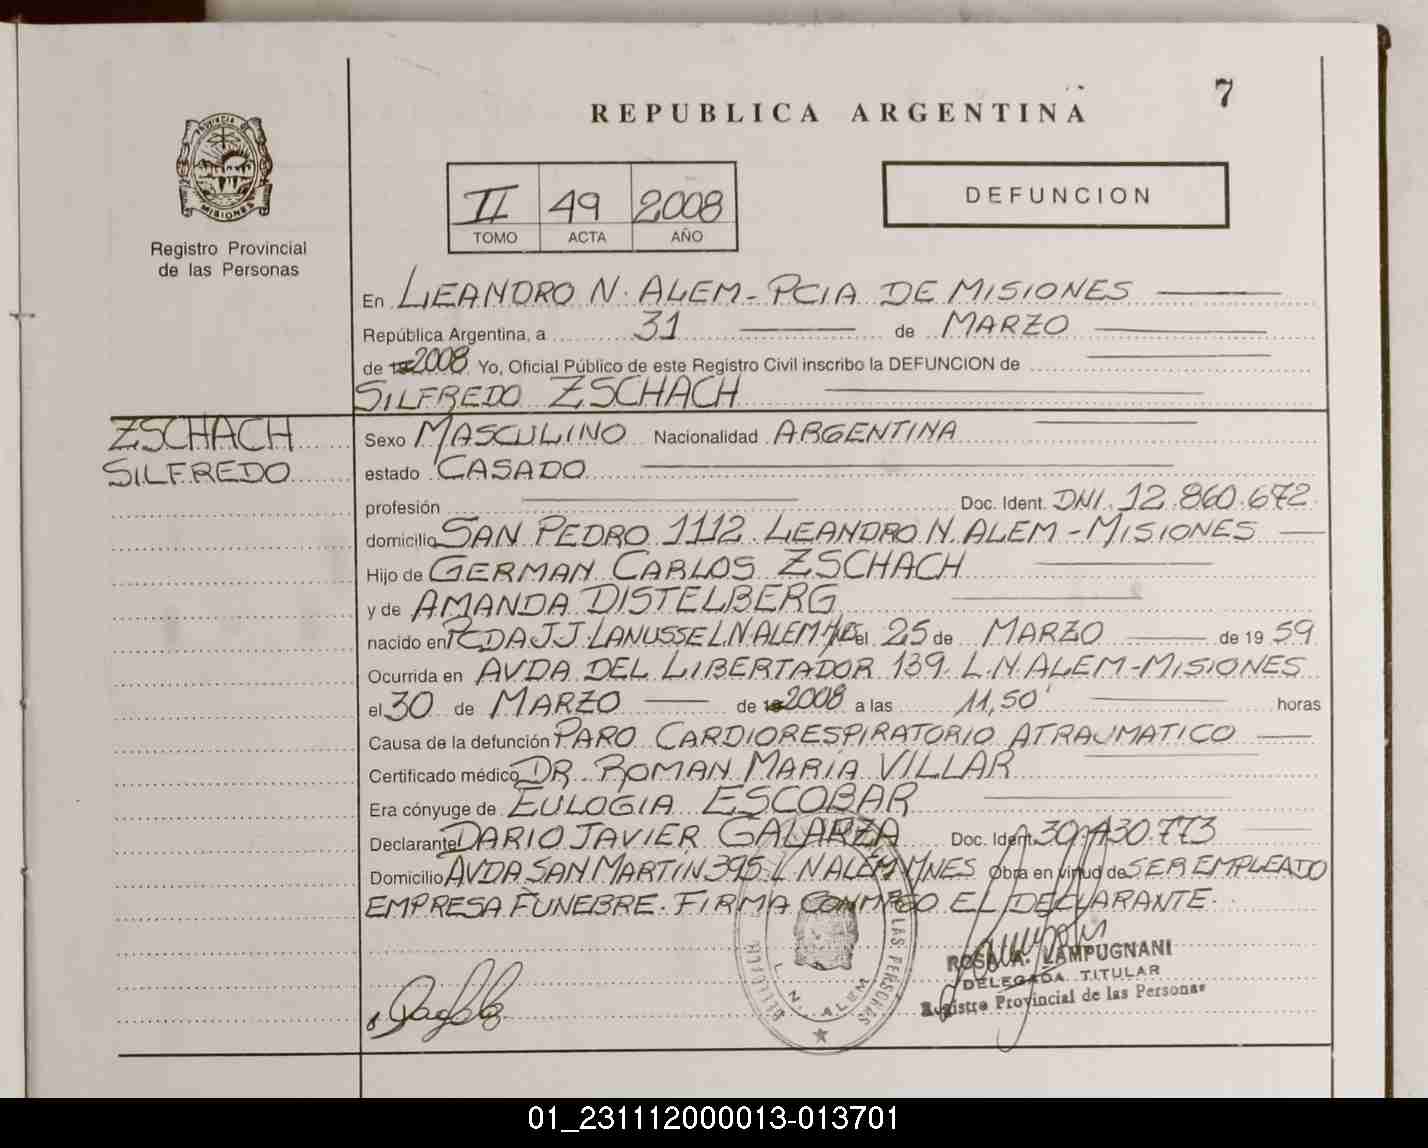 7
REPUBLICA ARGENTINA
PROVINCIA DE
MISIONES
Registro Provincial
de las Personas
II 49 2008
TOMO ACTA AÑO
DEFUNCION
En LEANDRO N. ALEM - PCIA DE MISIONES
República Argentina, a 31 de MARZO
de 2008 Yo, Oficial Público de este Registro Civil inscribo la DEFUNCION de
SILFREDO ZSCHACH
ZSCHACH
SILFREDO
Sexo MASCULINO Nacionalidad ARGENTINA
estado CASADO
profesión Doc. Ident. DNI. 12.860.672
domicilio SAN PEDRO 1112 LEANDRO N. ALEM - MISIONES
Hijo de GERMAN CARLOS ZSCHACH
y de AMANDA DISTELBERG
nacido en PCDA J.J. LANUSSE L.N ALEM Mnes el 25 de MARZO de 19 59
Ocurrida en AVDA DEL LIBERTADOR 139 L.N. ALEM - MISIONES
el 30 de MARZO de 2008 a las 11,50' horas
Causa de la defunción PARO CARDIORESPIRATORIO ATRAUMATICO
Certificado médico DR. ROMAN MARIA VILLAR
Era cónyuge de EULOGIA ESCOBAR
Declarante DARIO JAVIER GALARZA Doc. Ident. 30.430.773
Domicilio AVDA SAN MARTIN 395 L N ALEM MNES Obra en virtud de SER EMPLEADO
EMPRESA FUNEBRE. FIRMA CONMIGO EL DECLARANTE.
LAS PERSONAS
L. N. ALEM
ROSA A. LAMPUGNANI
DELEGADA TITULAR
Registro Provincial de las Personas
01_231112000013-013701